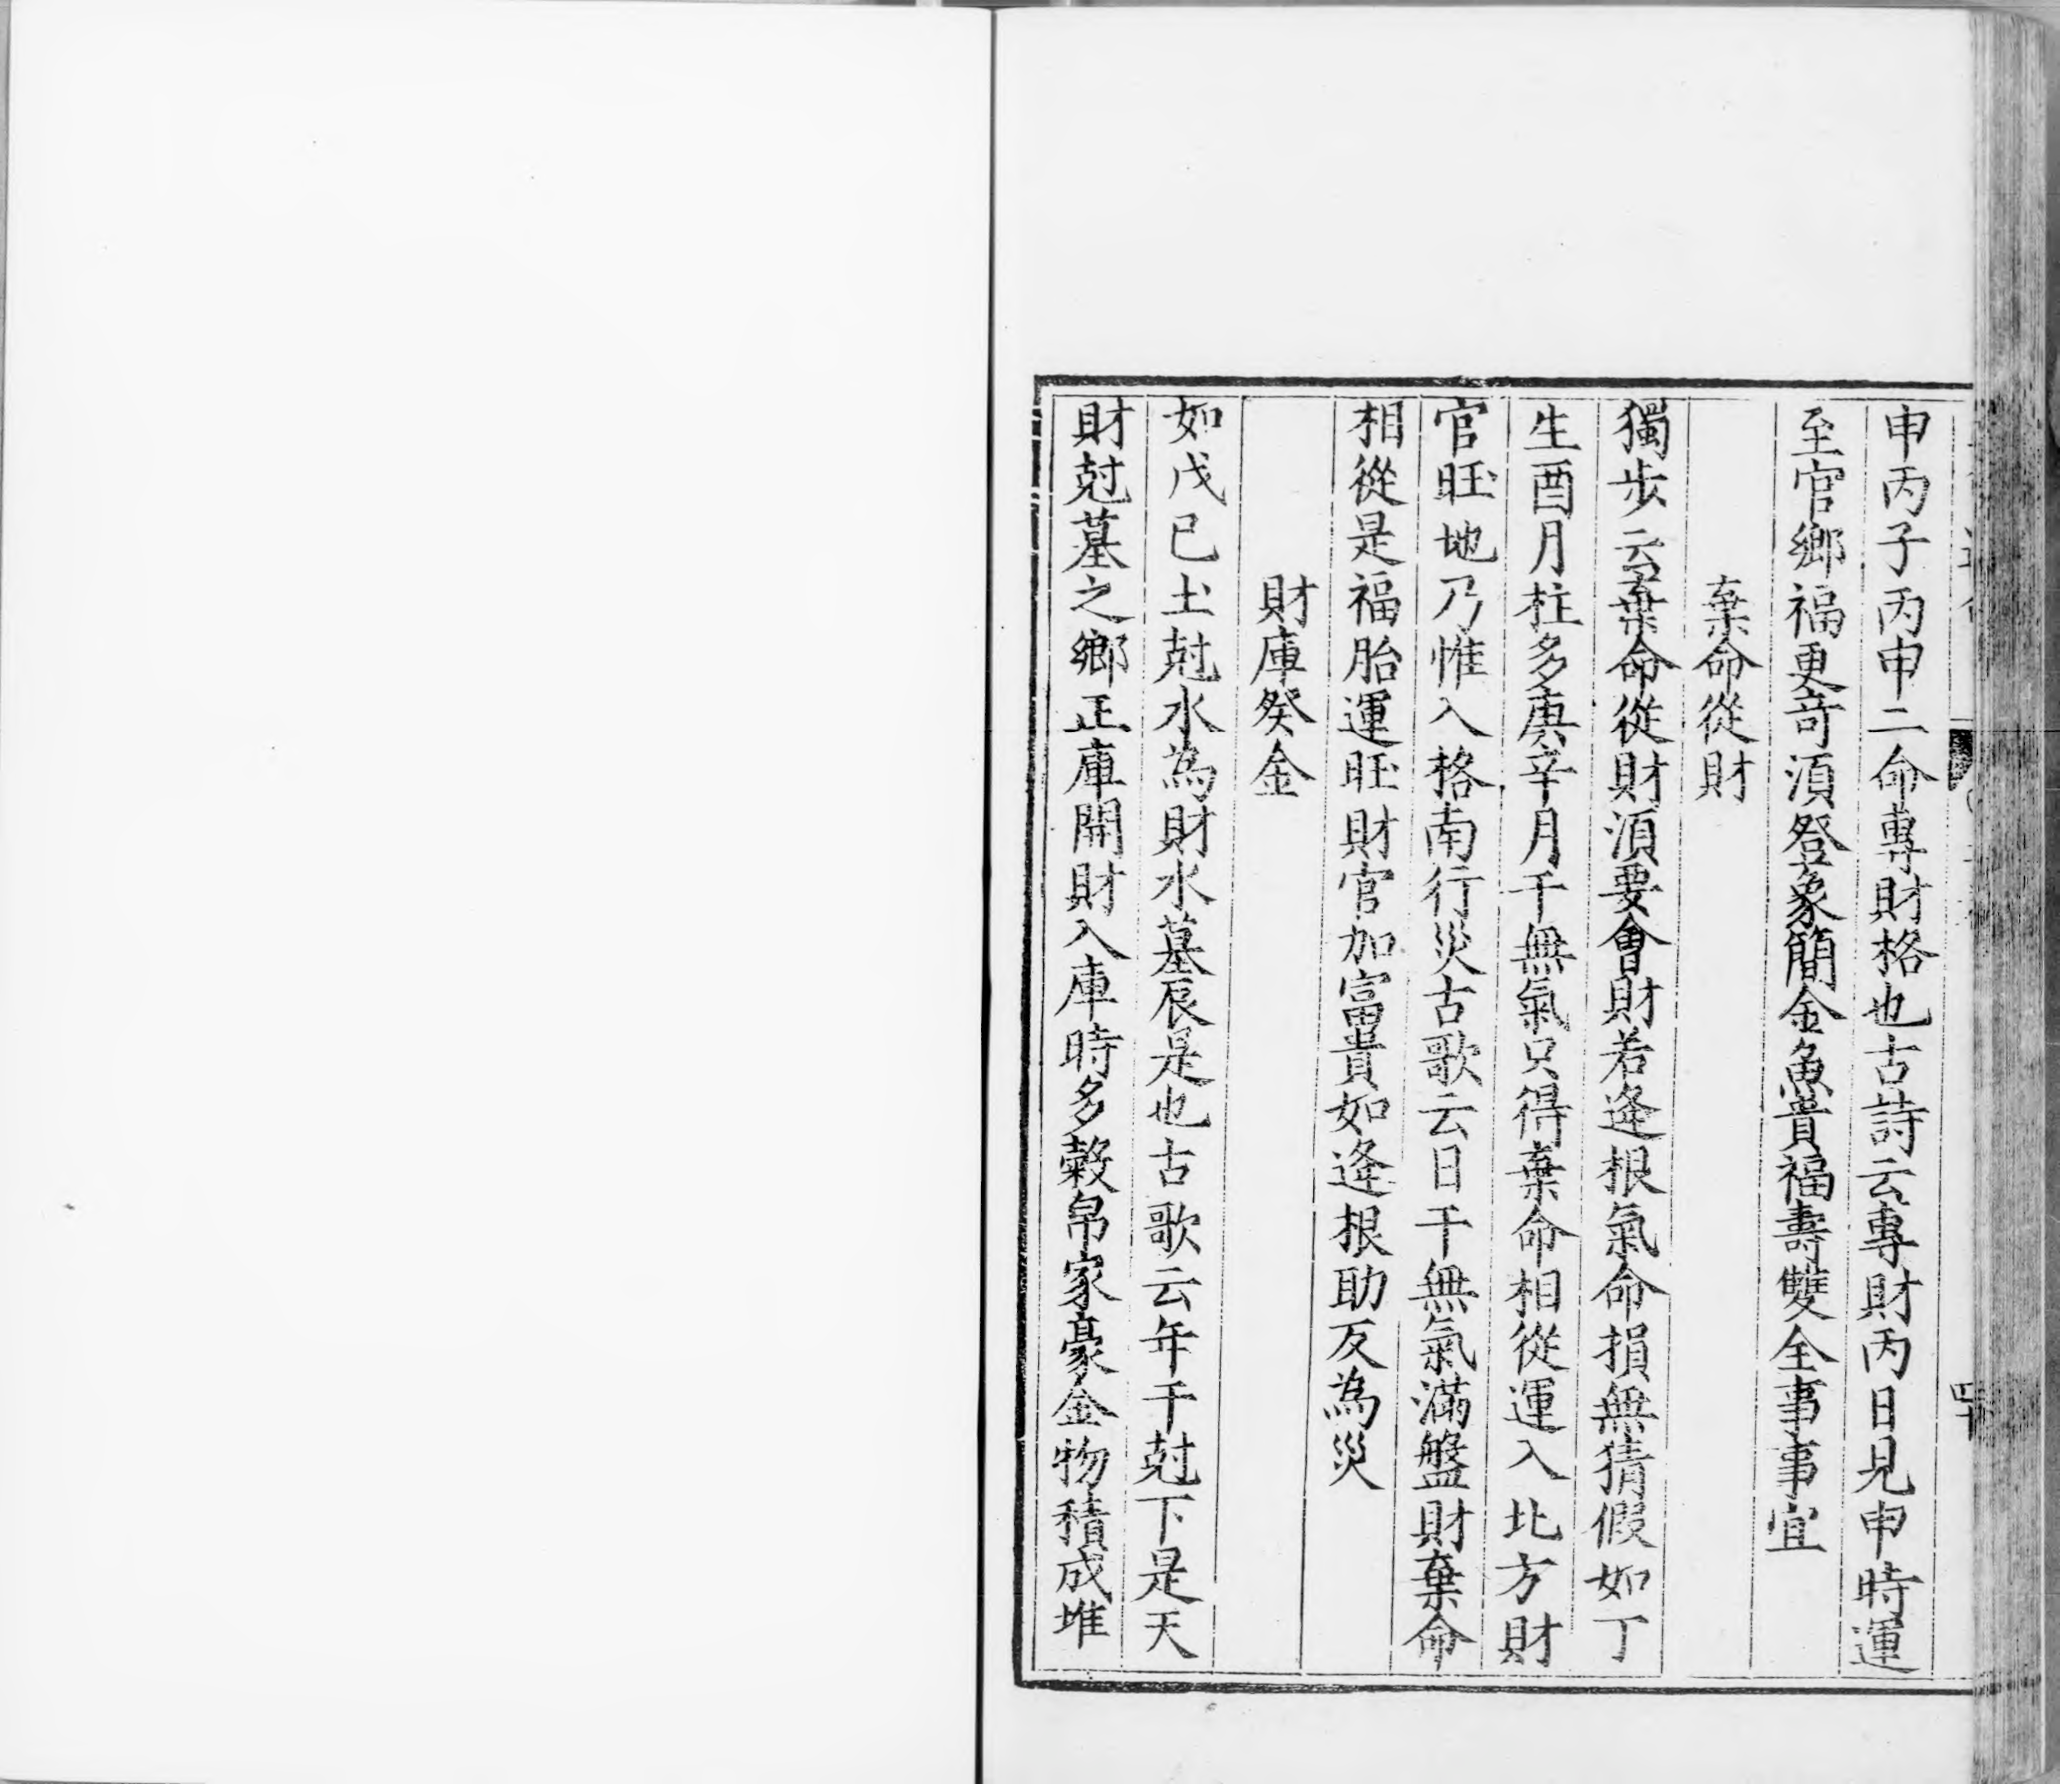 申丙子丙申二命專財格也古詩云專財丙日見申時運
至官鄉福更奇湏登象簡金魚貴福壽雙全事事宜
棄命從財
獨步云棄命從財湏要會財若逄根氣命損無猜假如丁
生酉月柱多庚辛月干無氣只得棄命相從運入北方財
官旺地乃惟入格南行災古歌云日干無氣滿盤財棄命
相從是福胎運旺財官加富貴如逄根助反為災
財庫癸金
如戊己土尅水為財水墓辰是也古歌云年干尅下是天
財尅墓之鄉正庫開財入庫時多穀帛家豪金物積成堆